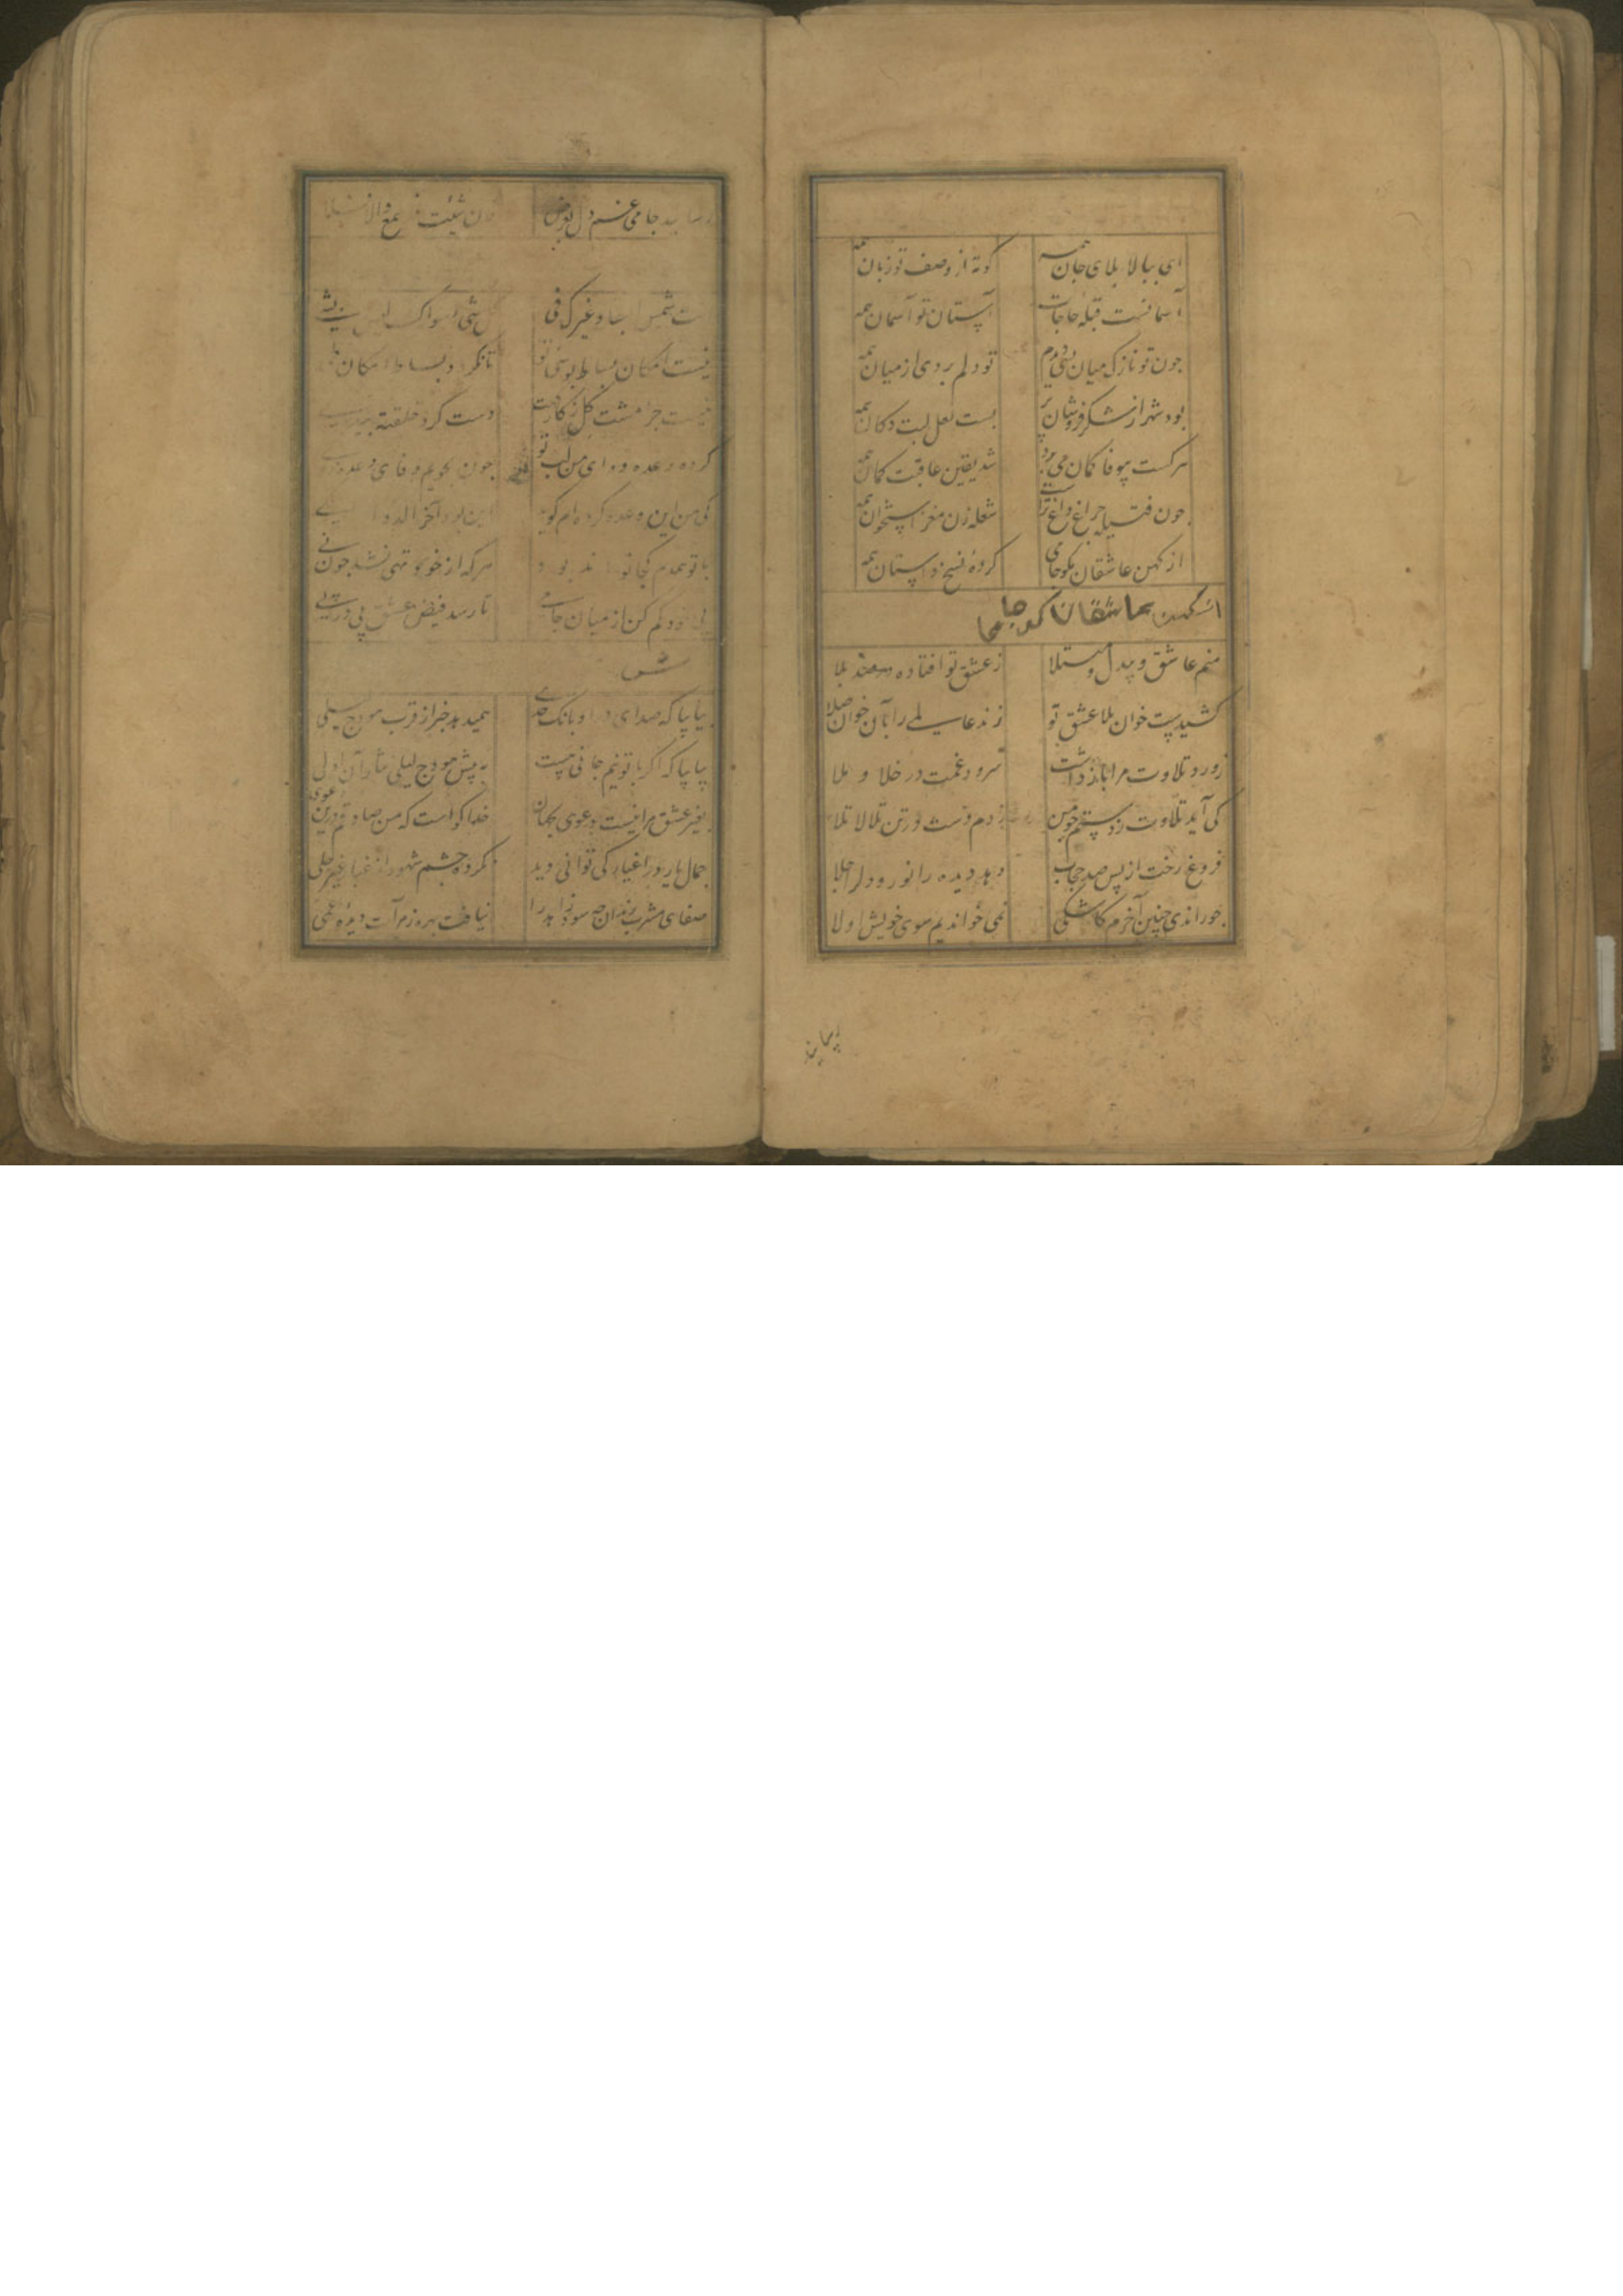 ای ببالا بلای جان همه کوته از وصف تو زبان همه
آسمانست قبله حاجات آستان تو آسمان همه
چون تو نازک میان بسی دیدم تو دلم بردی از میان همه
بود شهر از شکر فروشان پر بست لعل لبت دکان همه
هرکست بیوفا کمان می برد شد یقین عاقبت کمان همه
چون فتیله چراغ داغ تراست شعله زن مغز استخوان همه
از کهن عاشقان مکو جامی کرده نسخ داستان همه
عاشقان مکو جامی
منم عاشق و بیدل و مبتلا ز عشق تو افتاده در صد بلا
کشیدست خوان بلا عشق تو زند عاسلی را بآن خوان صلا
ز ورد تلاوت مرا باز داشت سرود غمت در خلا و ملا
کی آید تلاوت ز دستم چو من زدم دست در تن تلالا تلا
فروغ رخت از پس صد حجاب دهد دیده را نور و دل را جلا
چو راندی چنین آخرم کاشکی نمی خواندیم سوی خویش اولا
جامی غم دل بعرض فان شئت
نیست امکان بساط بوسی تو
نیست جز مشت کل ز کار تو دست کرد خلقته بیدی
کرده وعده دوای من لب تو چون بجویم وفای وعده ز وی
کی من این وعده کرده ام کوید این بود آخر الدوا الکی
با تو همدم کجا تواند بود هر که از خود تهی نشد چون نی
خود کم کن از میان جامی تا رسد فیض عشق پی در پی
بیا بیا که صدای درا و بانک حدی همیدهد خبر از قرب هودج سلمی
بیا بیا که اکر با تو نیم جانی هست به پیش هودج لیلی نثار آن اولی
بغیر عشق مرا نیست دعوی بجهان خدا کواست که من صادقم درین دعوی
جمال یار در اغیار کی توانی دید نکرده چشم شهود از غبار غیر جلی
صفای مشرب رندان چه سود زاهد را نیافت بهره ز مرآت دیده اعمی